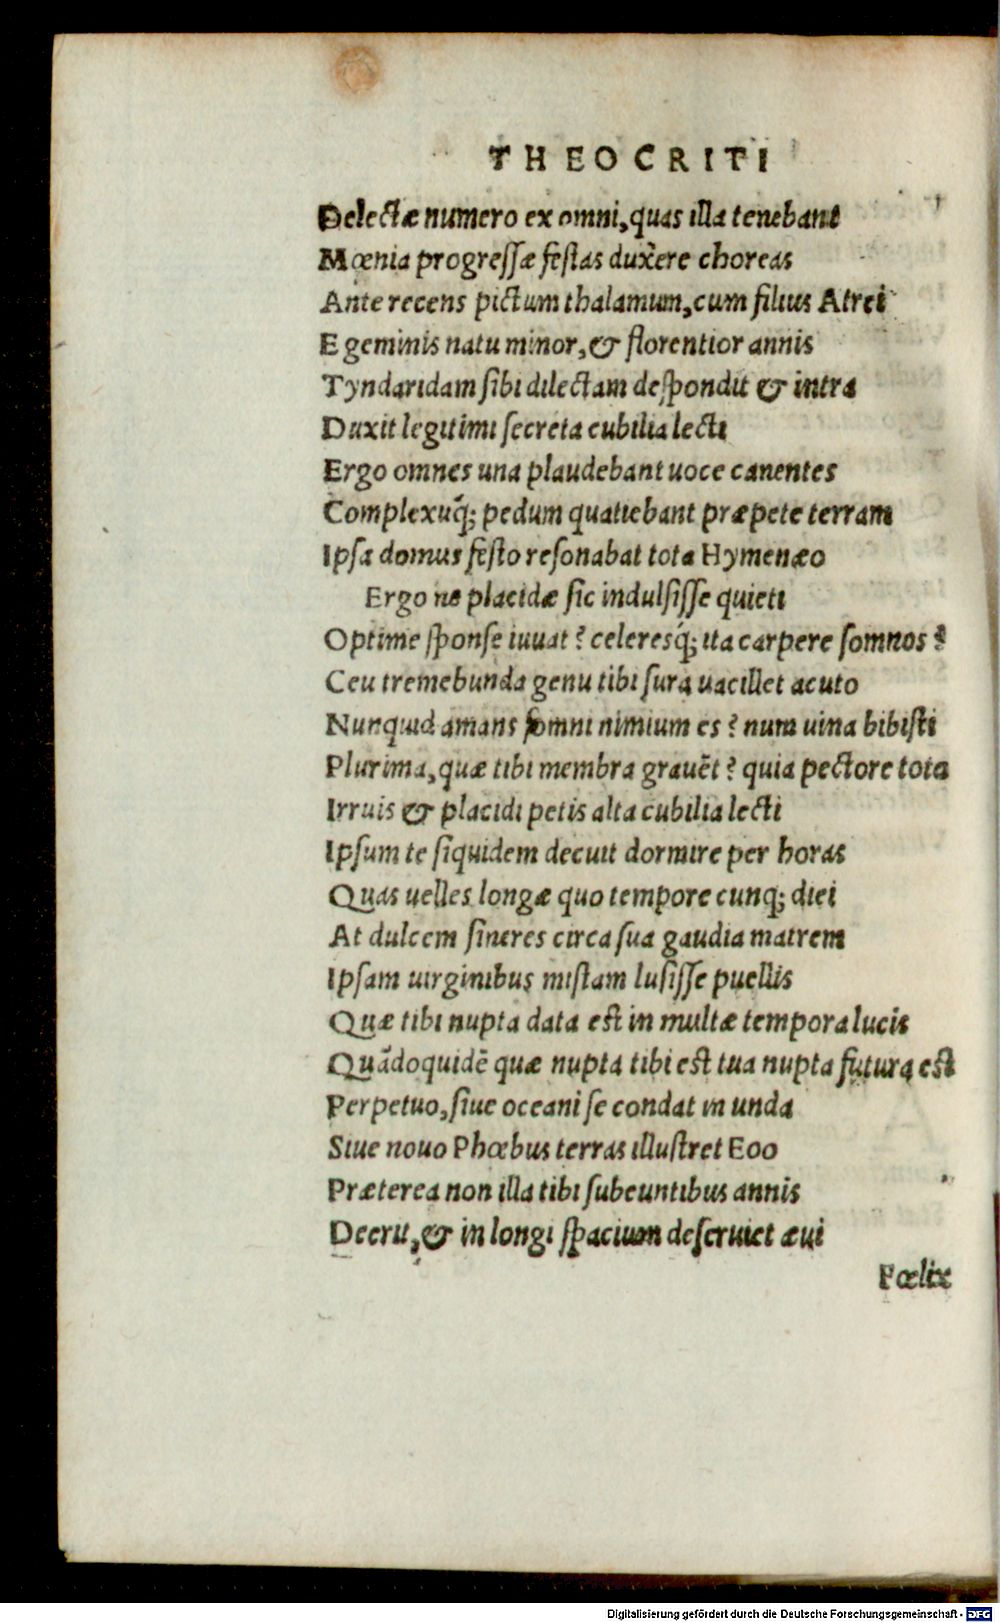 THEOCRITI
Delectæ numero ex omni, quas illa tenebant
Mœnia progressæ festas duxere choreas
Ante recens pictum thalamum, cum filius Atrei
E geminis natu minor, & florentior annis
Tyndaridam sibi dilectam despondit & intra
Duxit legitimi secreta cubilia lecti
Ergo omnes una plaudebant uoce canentes
Complexuq́; pedum quatiebant præpete terram
Ipsa domus festo resonabat tota Hymenæo
Ergo ne placidæ sic indulsisse quieti
Optime sponse iuuat? celeresq́; ita carpere somnos?
Ceu tremebunda genu tibi sura uacillet acuto
Nunquid amans somni nimium es? num uina bibisti
Plurima, quæ tibi membra grauēt? quia pectore toto
Irruis & placidi petis alta cubilia lecti
Ipsum te siquidem decuit dormire per horas
Quas uelles longæ quo tempore cunq; diei
At dulcem sineres circa sua gaudia matrem
Ipsam uirginibus mistam lusisse puellis
Quæ tibi nupta data est in multæ tempora lucis
Quādoquidē quæ nupta tibi est tua nupta futura est
Perpetuo, siue oceani se condat in unda
Siue nouo Phœbus terras illustret Eoo
Præterea non illa tibi subeuntibus annis
Deerit, & in longi spacium deseruiet æui
Fœlix
Digitalisierung gefördert durch die Deutsche Forschungsgemeinschaft - DFG